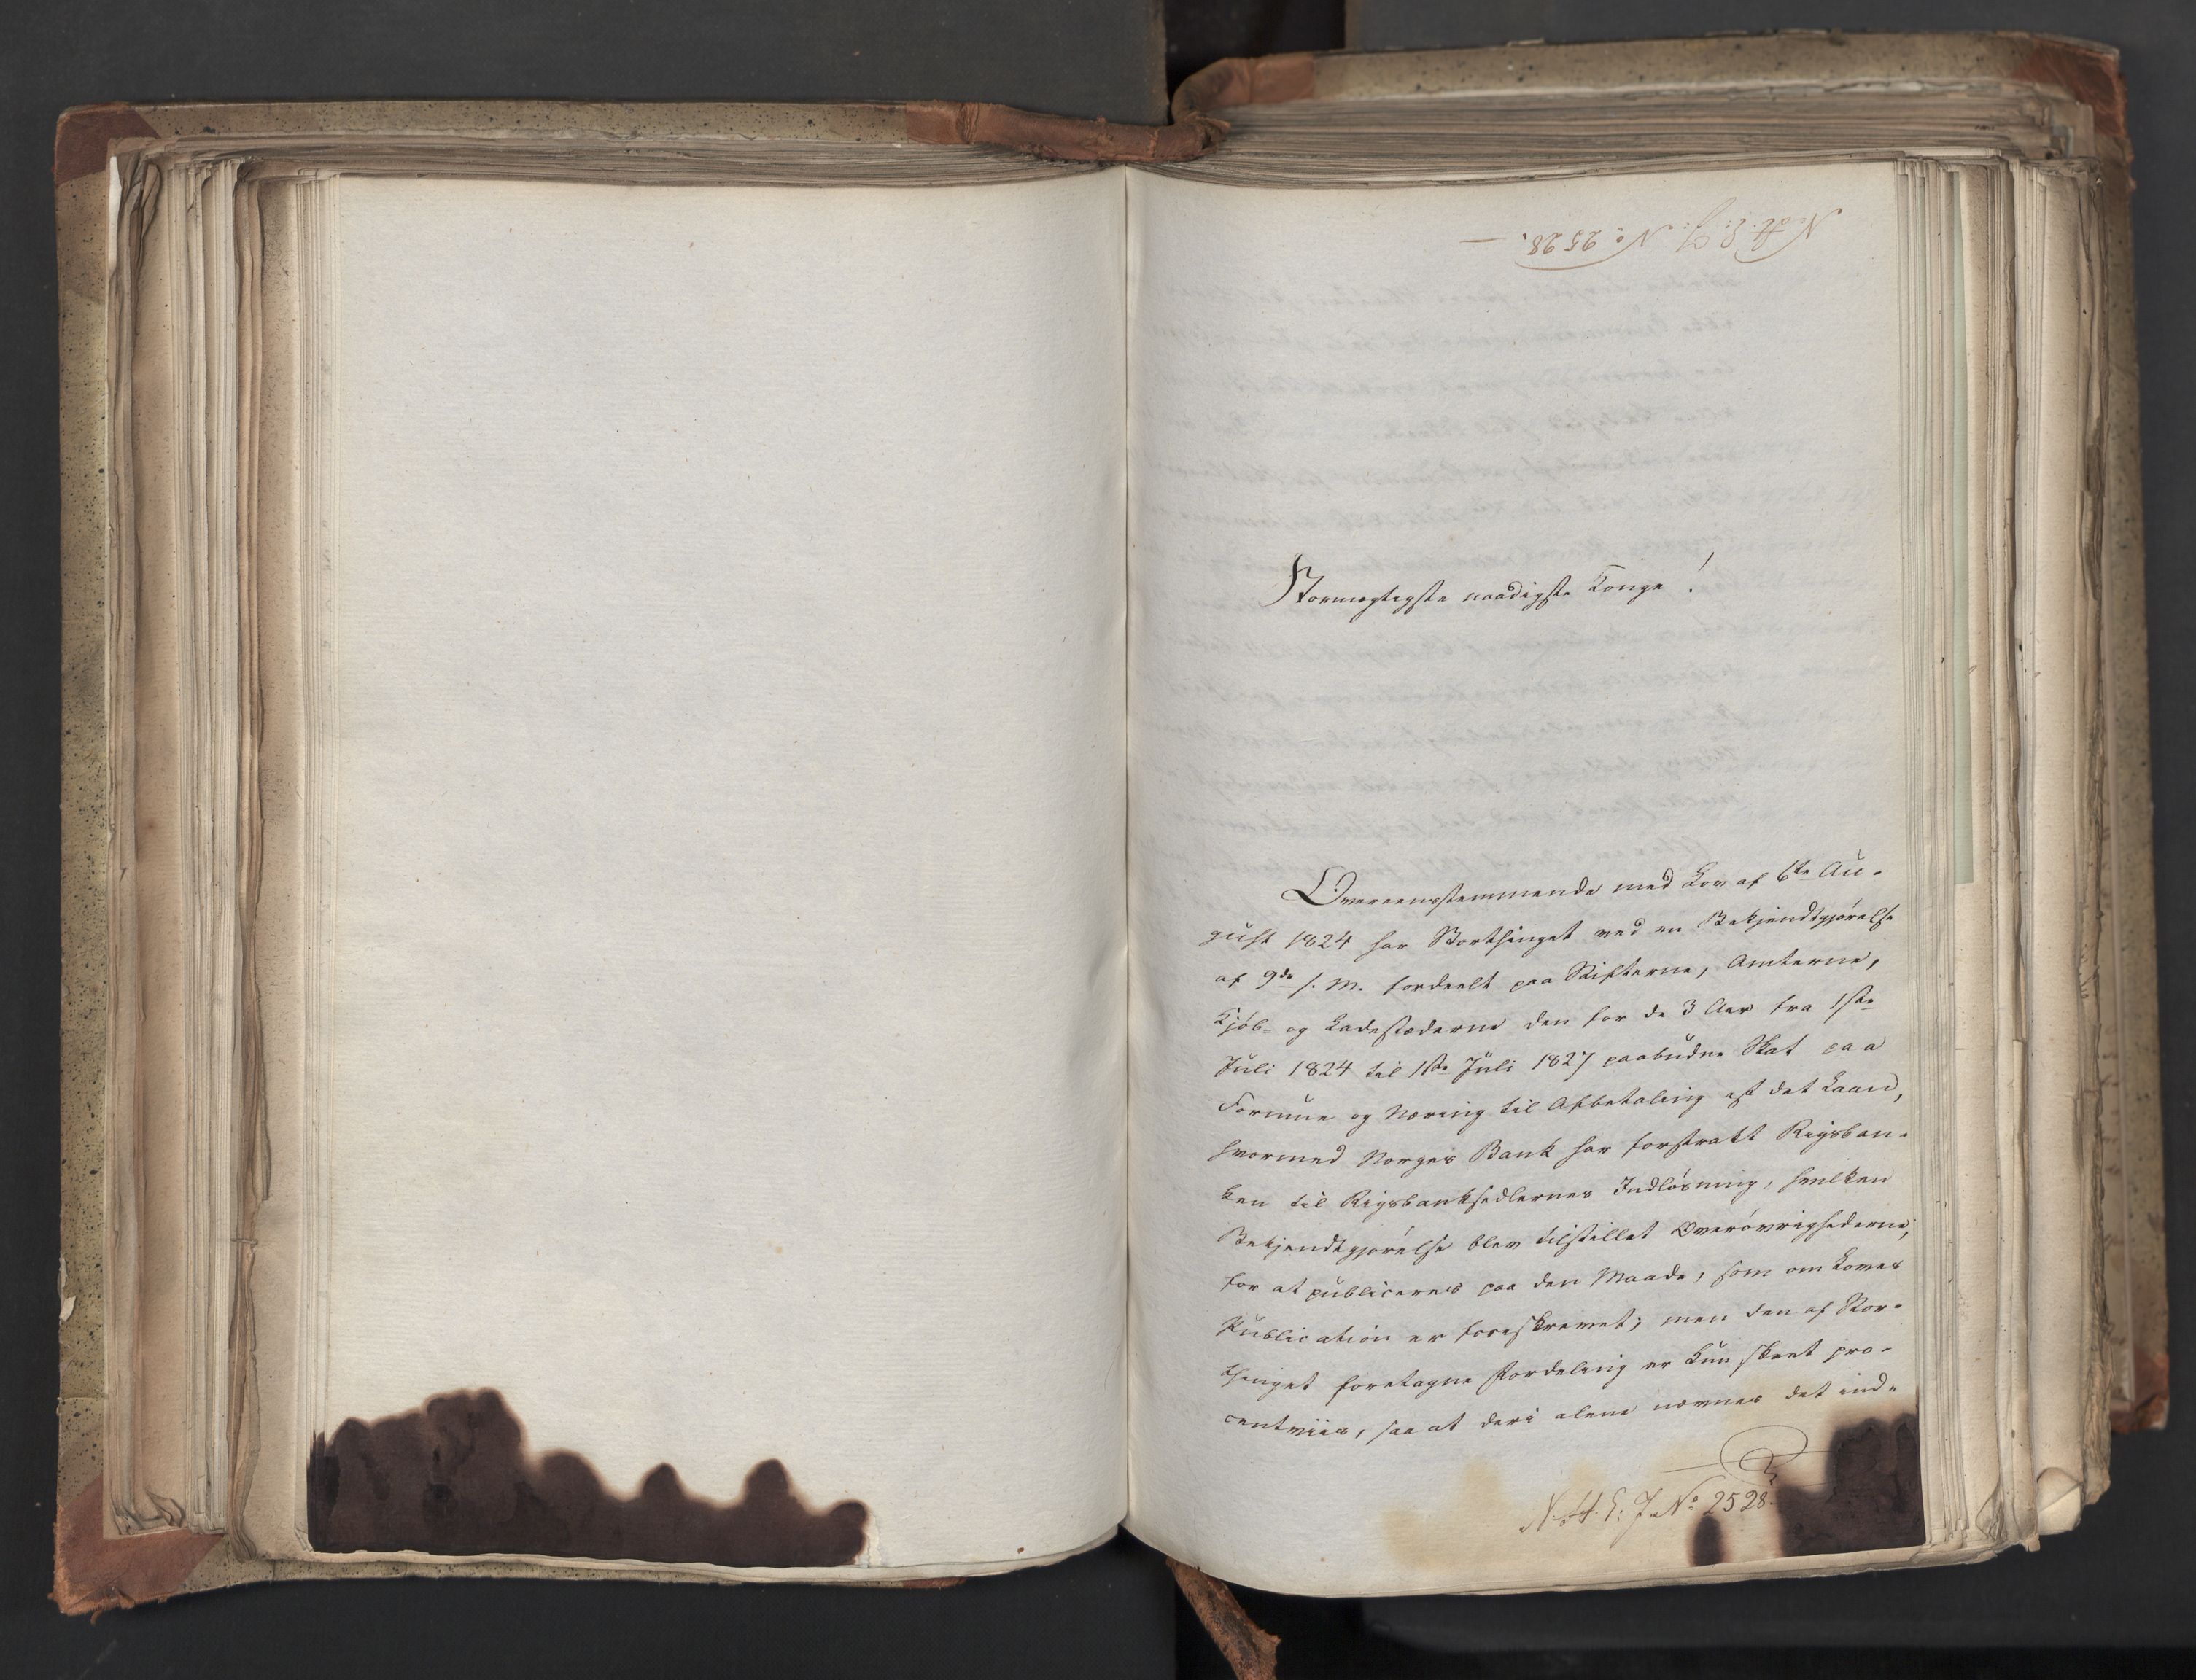 N. H. E. J: No 2528.
Stormægtigste naadigste Konge!
Overeensstemmende med Lov af 6te Au-
gust 1824 har Storthinget ved en Bekjendtgjørelse
af 9de s. M. fordeelt paa Stifterne, Amterne,
Kjøb- og Ladestæderne den for de 3 Aar fra 1ste
Juli 1824 til 1ste Juli 1827 paabudne Skat paa
Formue og Næring til Afbetaling af det Laan,
hvormed Norges Bank har forstrakt Rigsban-
ken til Rigsbanksedlernes Indløsning, hvilken
Bekjendtgjørelse blev tilstillet Overøvrighederne,
for at publiceres paa den Maade, som om Loves
Publication er foreskrevet; men den af Stor-
thinget foretagne Fordeling er kun skeet pro-
centviis, saa at deri alene nævnes det ind-
N. H. E. J. No 2528.